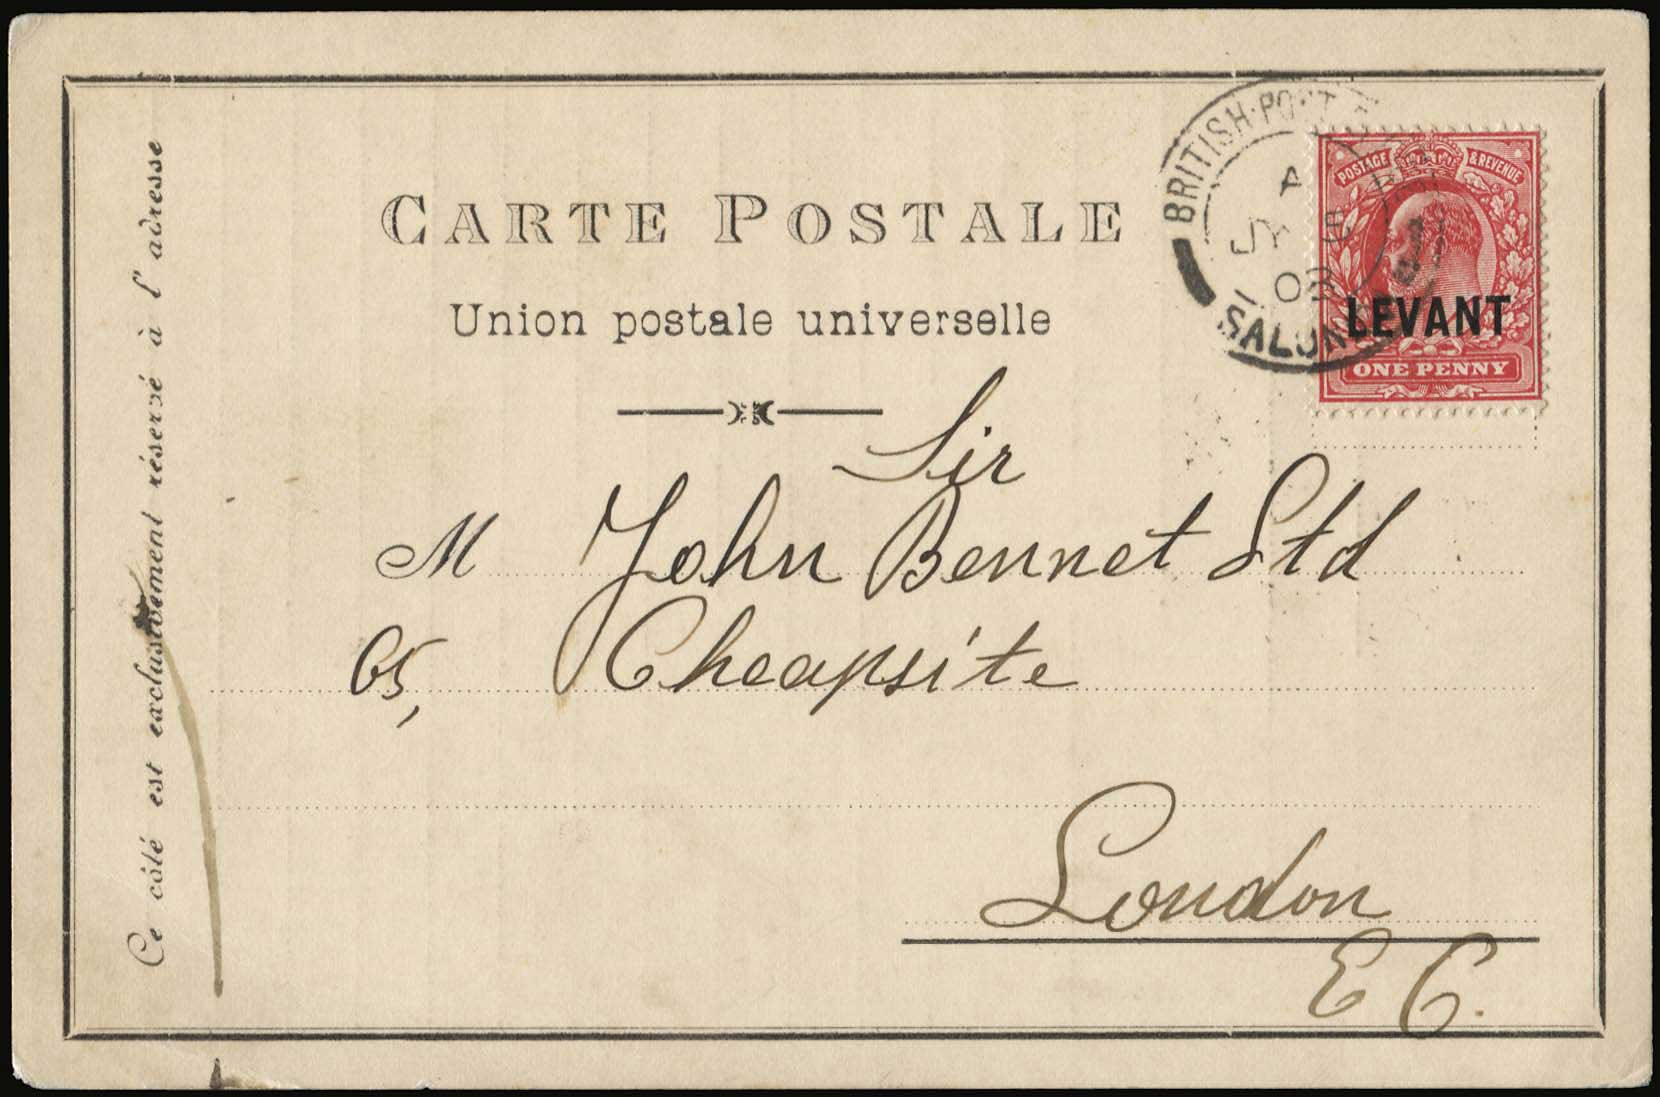 CARTE POSTALE
Union postale universelle
BRITISH POST
A
JY
02
SALONICA
POSTAGE & REVENUE
LEVANT
ONE PENNY
Sir
M John Bennet Ltd
65, Cheapsite
London
E C.
Ce côté est exclusivement réservé à l'adresse